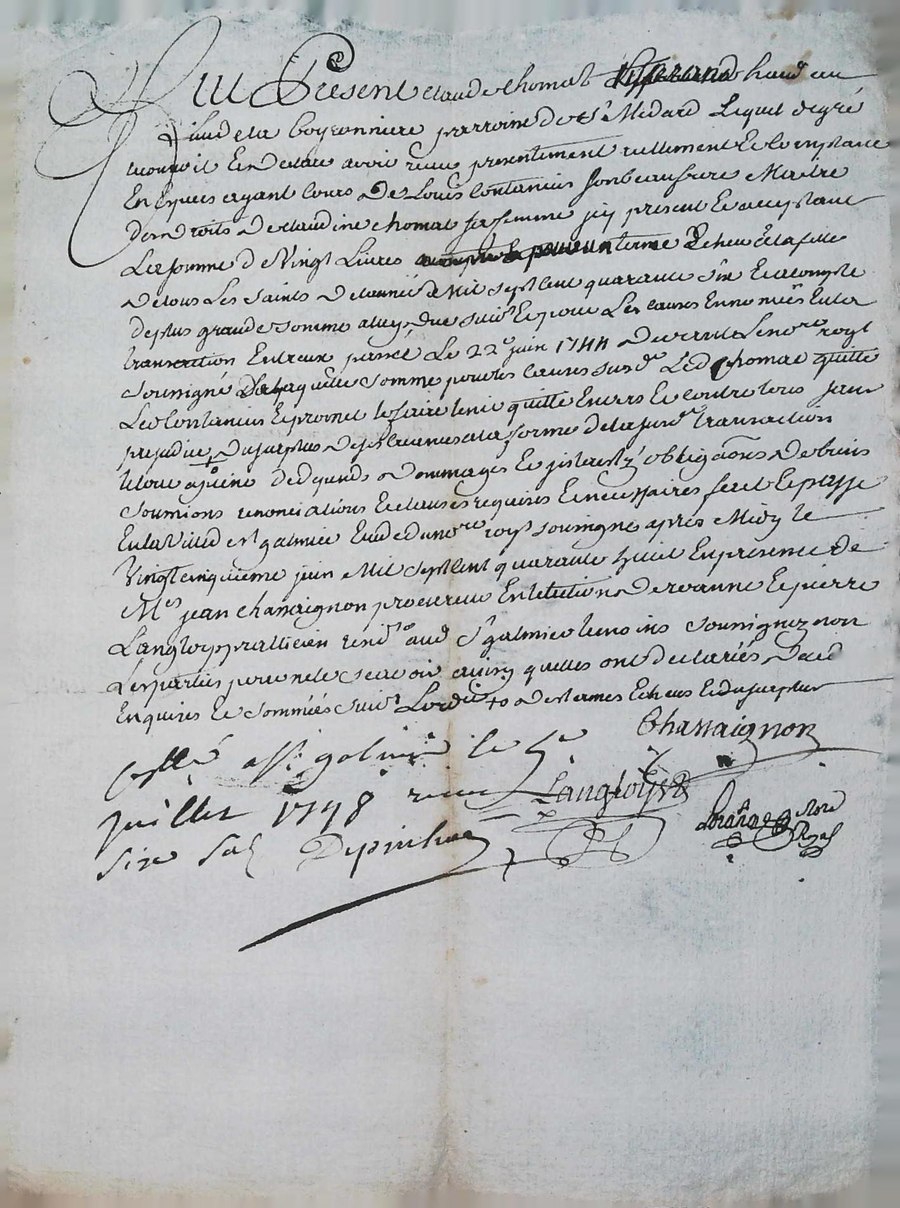 Fut Present Claude Chomat hand au
Lieu de la boyronniere parroisse de St Medard Lequel de gré
a receu et declare avoir receu presentement reellement Et Comptant
En Especes ayant Cours De Louis Contanius son beaufrere Maitre
des droits De claudine chomat sa femme jcy present Et acceptant
La somme de Vingt Livres terme Echeu a la feste
De tous Les Saints De l'année Mil sept Cent quarante six Et a Compte
de plus grande somme a luy due suivt Et pour Les causes Ennoncées En la
transaction Entreux passée Le 22e juin 1744 Devant Le nore royl
soussigné De Laquelle somme pour les causes susd Led Chomat quitte
Led Contanius Et promet le faire tenir quitte Envers Et contre tous sans
prejudice du surplus a la forme de la susd transaction
a peine de tous depends dommages Et jnterests obligaons De biens
soumions renonciations Et clauses requises Et necessaires fait Et passé
En la Ville de st galmier Etude du nore royl soussigné apres Midy le
Vingt cinquieme juin Mil sept Cent quarante huit En presence de
Mes jean Chassaignon procureur En lelection De roanne Et pierre
Langlois pratticien residt aud St galmier temoins soussignez non
Les parties pour ne le scavoir ainsy quelles ont declarées De ce
Enquises Et sommées suivt Lordce Echeus Et du surplus
Collé a St galmier le 5e
juillet 1748 receu
six sols Depinhac
Chassaignon
Langlois
Nore
Royal